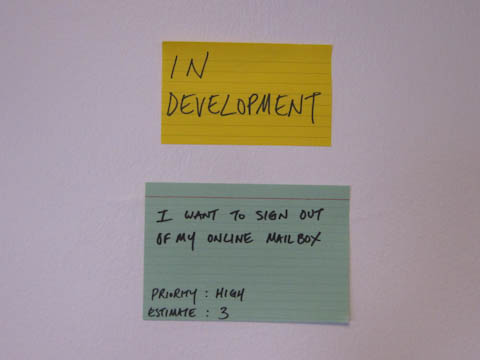 IN
DEVELOPMENT
I WANT TO SIGN OUT
OF MY ONLINE MAILBOX
PRIORITY : HIGH
ESTIMATE : 3